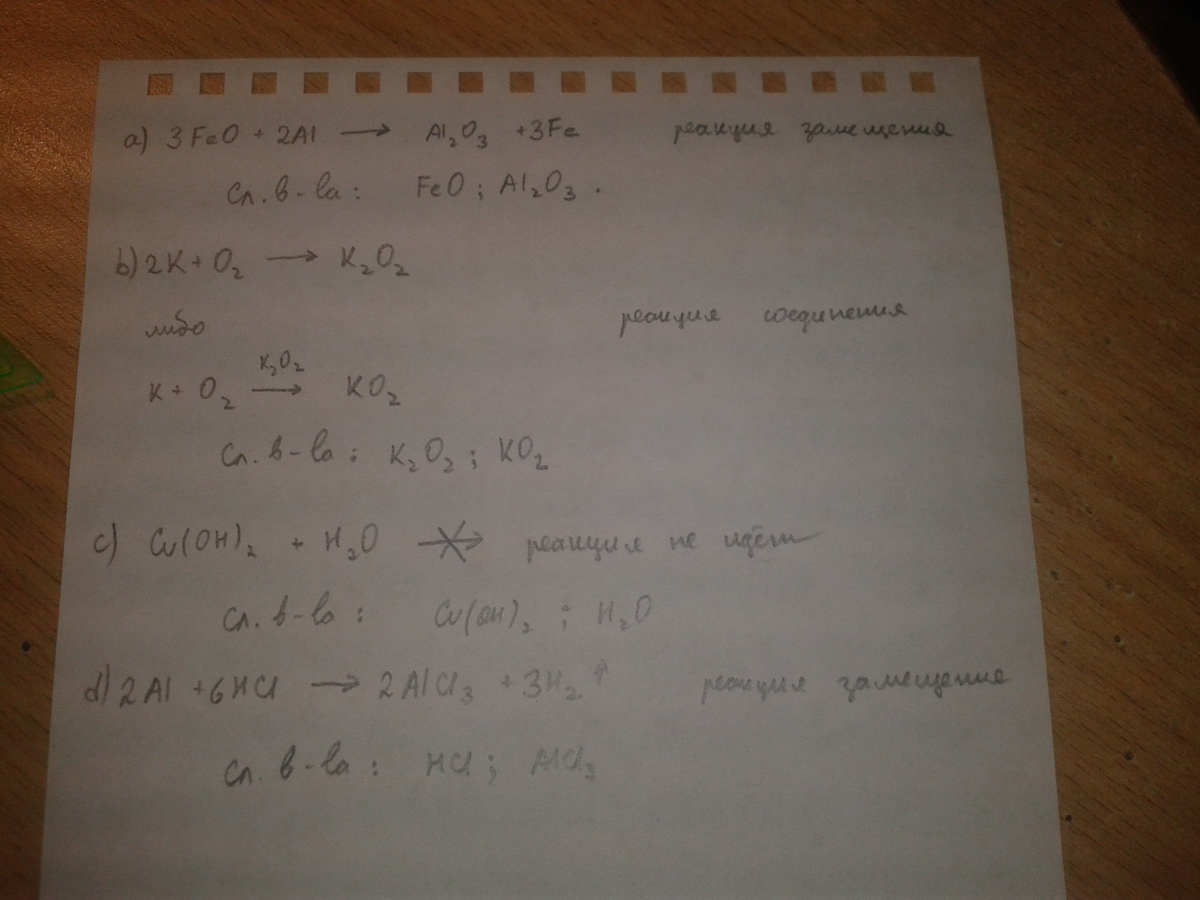 a) 3FeO + 2Al → Al₂O₃ + 3Fe реакция замещения
Сл. в-ва: FeO; Al₂O₃.
b) 2K + O₂ → K₂O₂
либо реакция соединения
K₂O₂
K + O₂ → KO₂
Сл. в-ва: K₂O₂; KO₂
c) Cu(OH)₂ + H₂O ↛ реакция не идёт
Сл. в-ва: Cu(OH)₂; H₂O
d) 2Al + 6HCl → 2AlCl₃ + 3H₂↑ реакция замещение
Сл. в-ва: HCl; AlCl₃